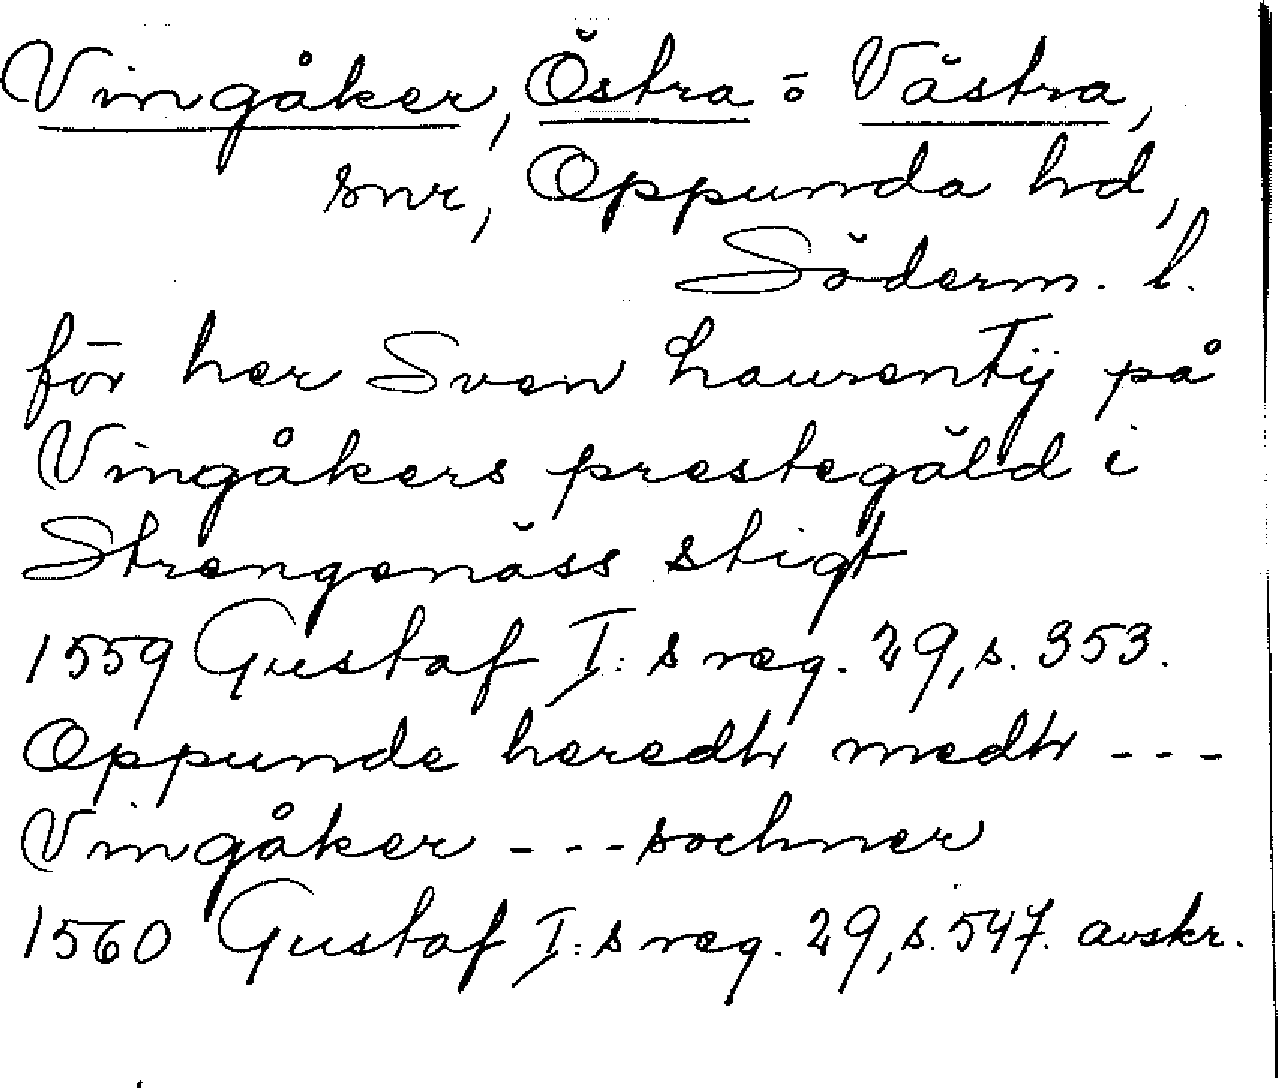 Vingåker, Östra o Västra,
snr, Oppunda hd,
Söderm. l.
för her Sven Laurentij på
Vingåkers prestegäld i
Strengenäss stigt
1559 Gustaf I:s reg. 29, s. 353.
Oppunde heredh medh ---
Vingåker --- sochner
1560 Gustaf I:s reg. 29, s. 547. avskr.